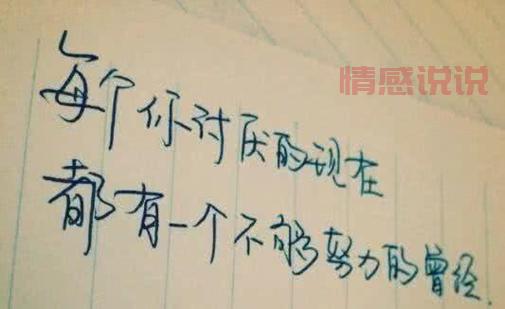 情感说说
每个你讨厌的现在
都有一个不够努力的曾经.